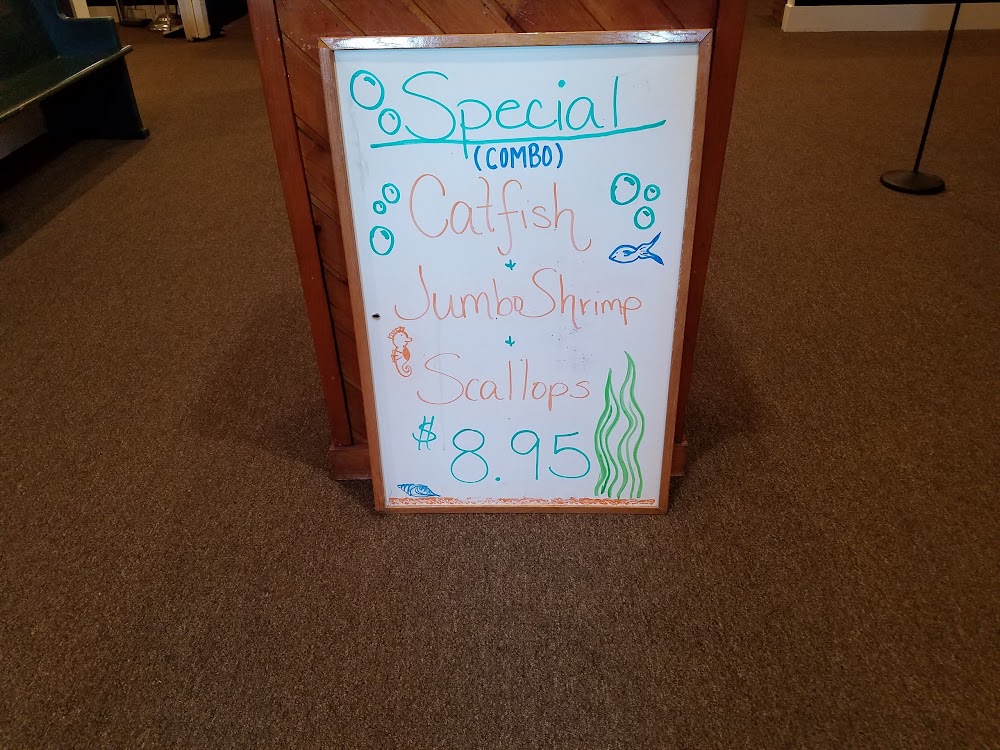 Special
(COMBO)
Catfish
+
Jumbo Shrimp
+
Scallops
$8.95